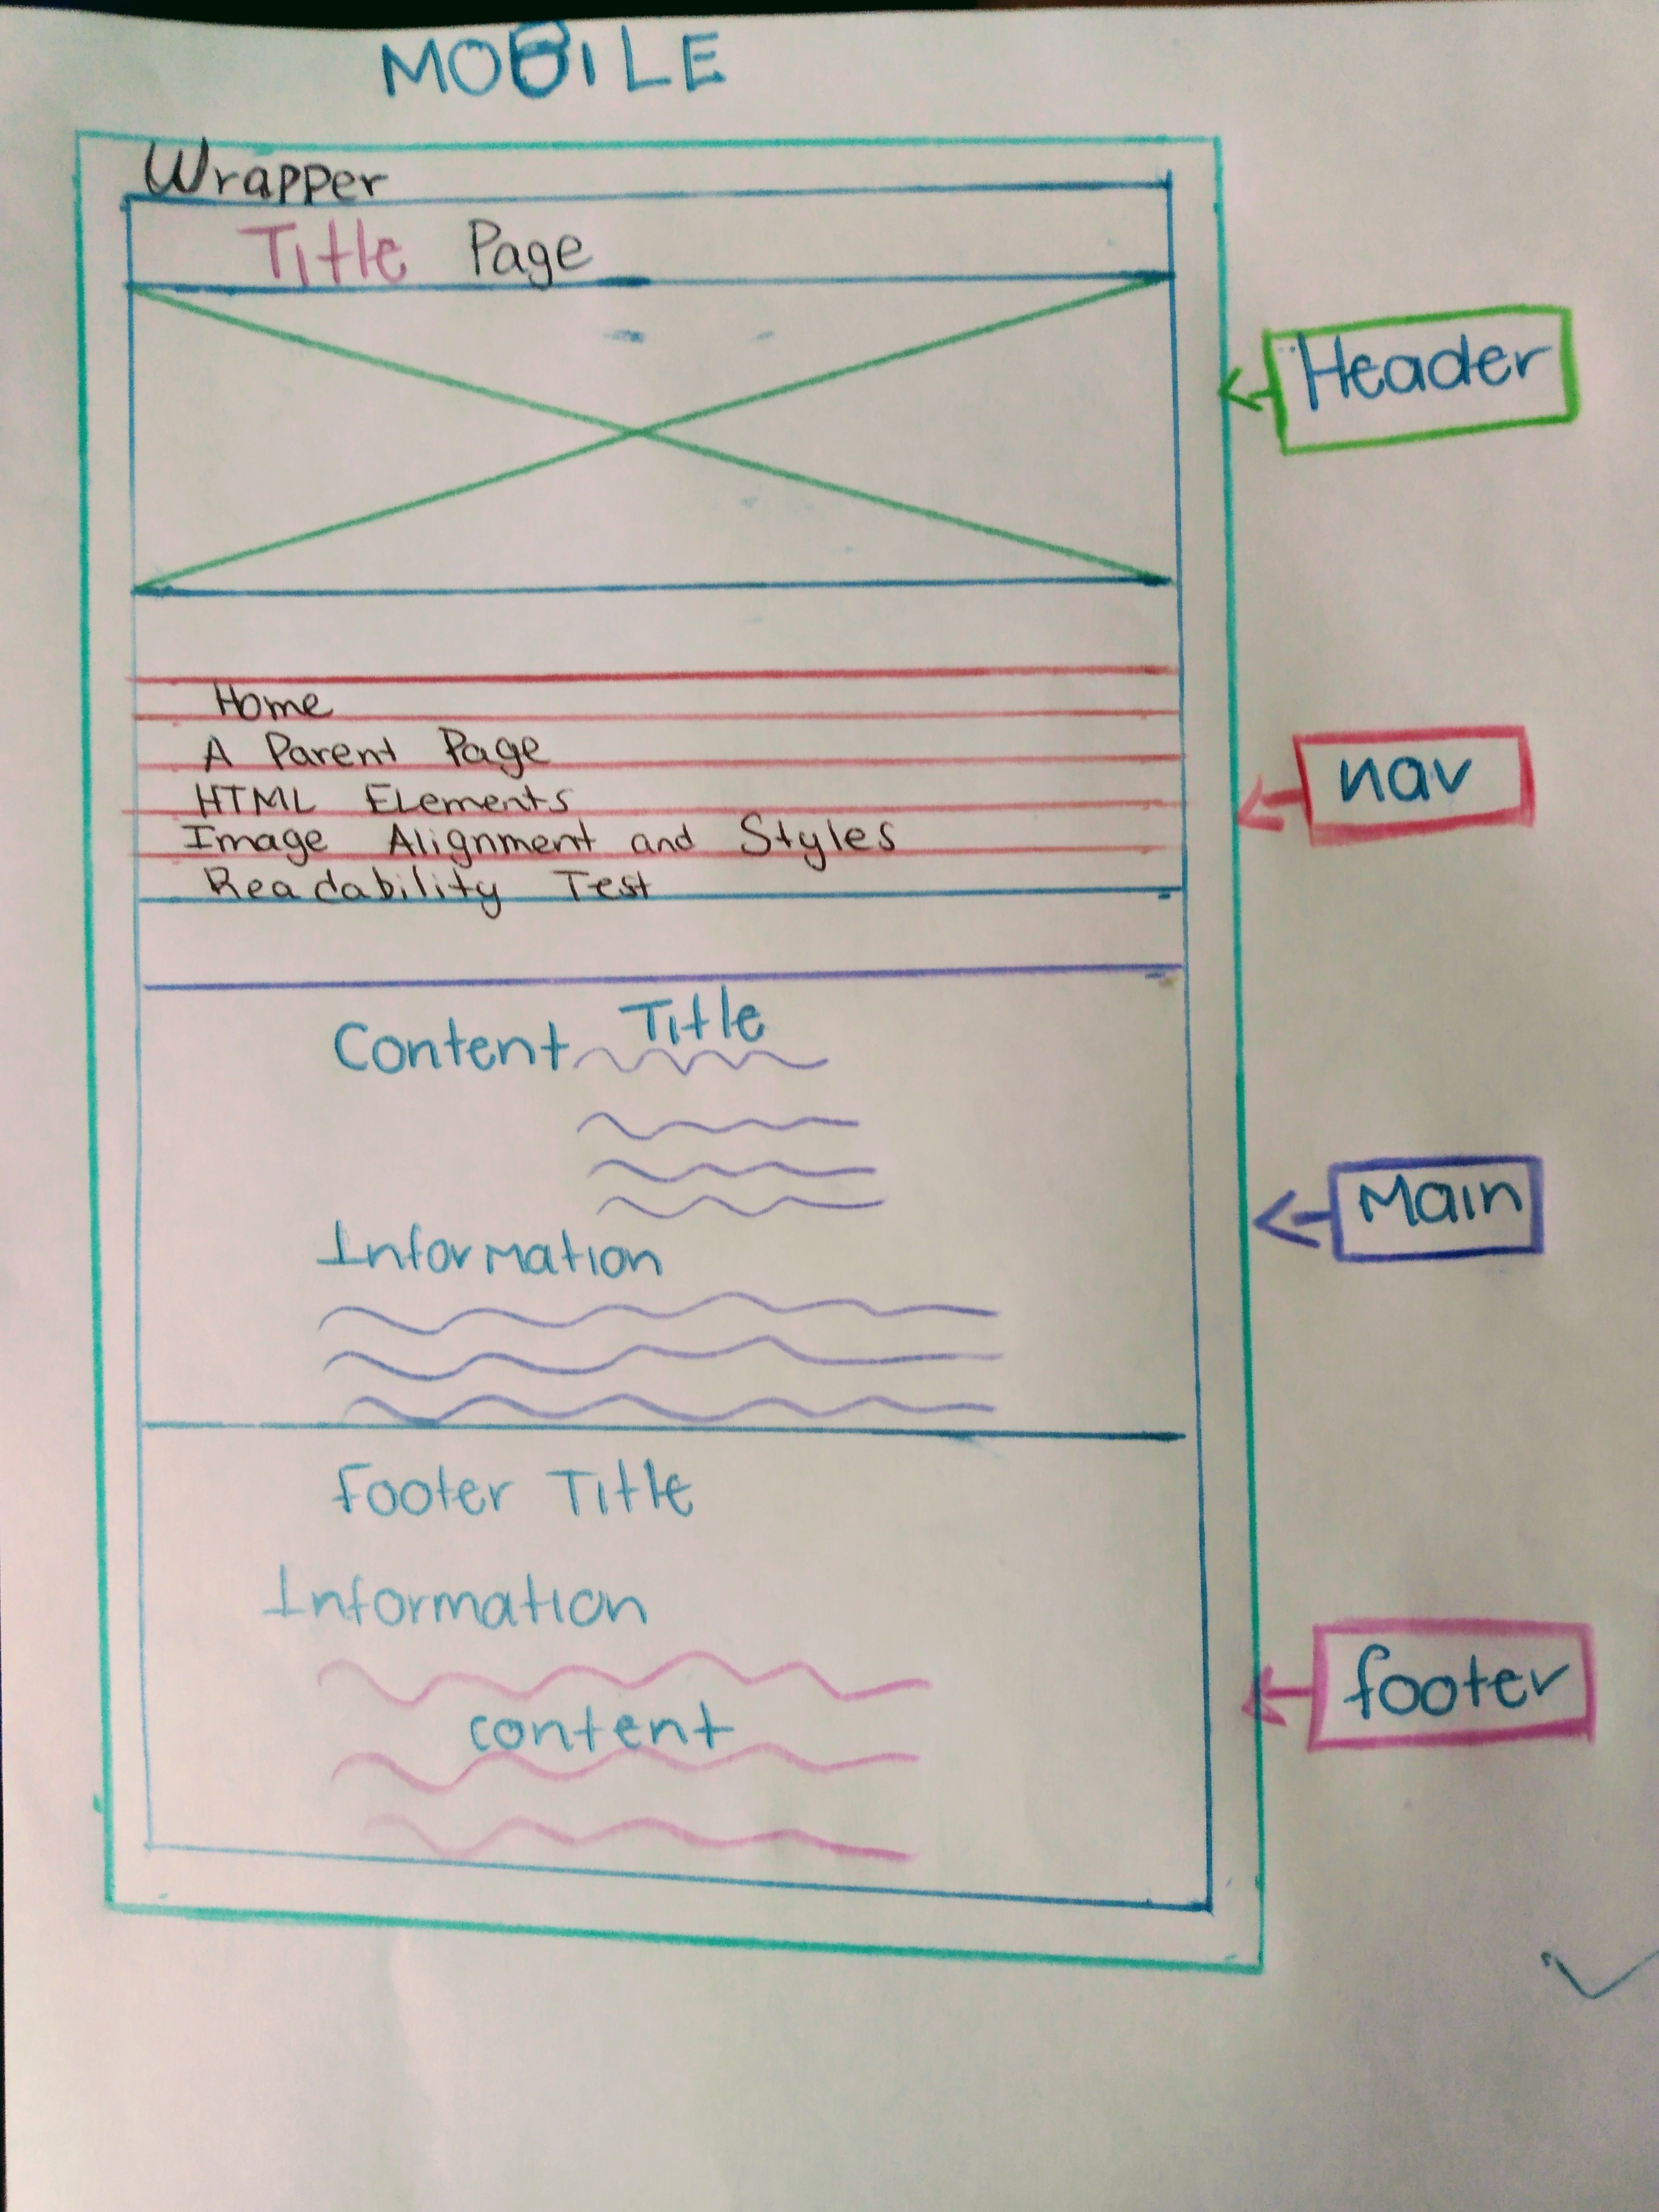 MOBILE
Wrapper
Title Page
Header
Home
A Parent Page
HTML Elements
Image Alignment and Styles
Readability Test
nav
Content Title
Information
Main
footer Title
Information
content
footer